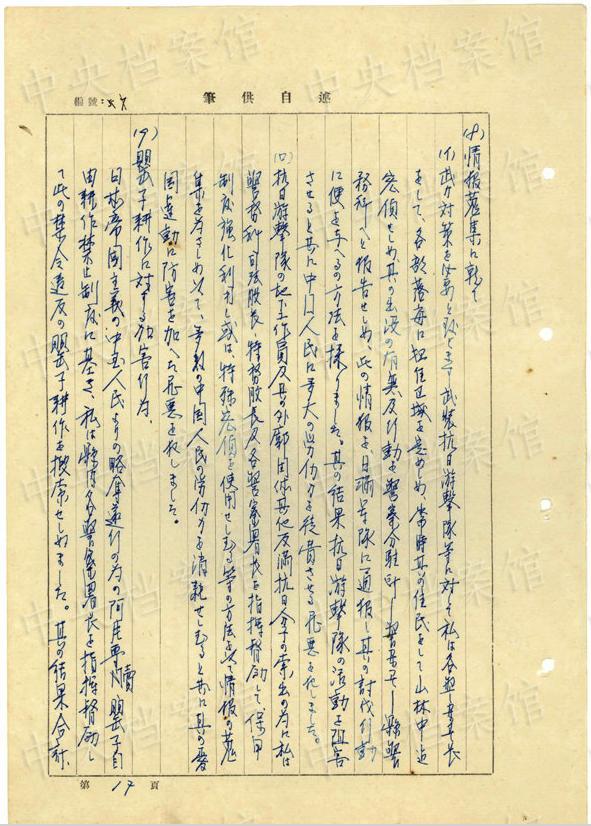 編號:
筆供自述
(8) 情报蒐集に就て
(イ) 武力対策を必要と致します武装抗日游撃隊等に対して私は各
をして、各部落毎に担任区域を定めしめ、常時其の住民をして山林中迄
密偵せしめ其の出没の有無及行動を警察分駐所―警察署―縣警
務科へと報告せしめ、此の情报を、日満軍隊に通报し其の討伐行動
に便を与へるの方法を採りました。其の結果抗日游撃隊の活動を阻害
させると共に中国人民に多大の労力を浪費させる罪悪を犯しました。
(ロ) 抗日游撃隊の地下工作員及其の外郭団体其他反満抗日分子の索出の為に私は
警務科司法股長、特務股長及各警察署長を指揮督励して、保甲
制度強化利用し或は、特務密偵を使用せしむる等の方法を以て情报の蒐
集を為さしめ以て、多数の中国人民の労力を消耗せしむると共に其の愛
国運動に防害を加へた罪悪を犯しました。
(9) 罌子耕作に対する加害行為、
日本帝国主義の中国人民よりの略奪遂行の為の阿片専賣、罌子自
由耕作禁止制度に基き、私は縣内各警察署長を指揮督励し
て此の禁令違反の罌子耕作を捜索せしめました。其の結果合計、
第 17 頁
中央档案馆